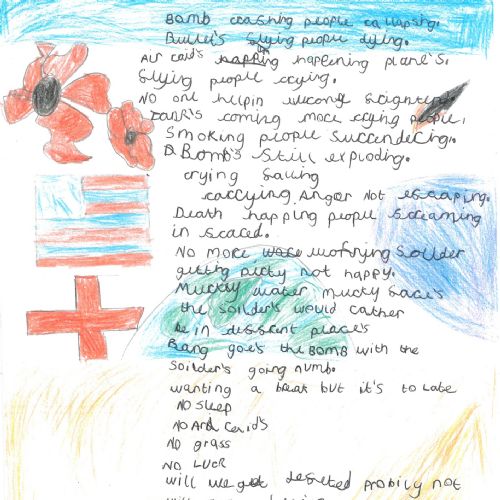 Bomb crashing people collapsing.
Bullet's flying people dying.
Air raid's happening plane's.
flying people crying.
NO one helpin wecome frighten
TANK'S coming more crying people,
Smoking people surrendering.
Bomb's still exploding.
crying falling
carrying Anger not escaping.
Death happing people screaming
in scared.
NO more worrying soilder
getting dirty not happy.
Mucky water mucky face's
the soilder's would rather
be in different places
Bang goes the BOMB with the
soilder's going numb.
wanting a break but it's to late
NO sleep
NO Are raid's
NO grass
NO Luck
will we get desreted probily not